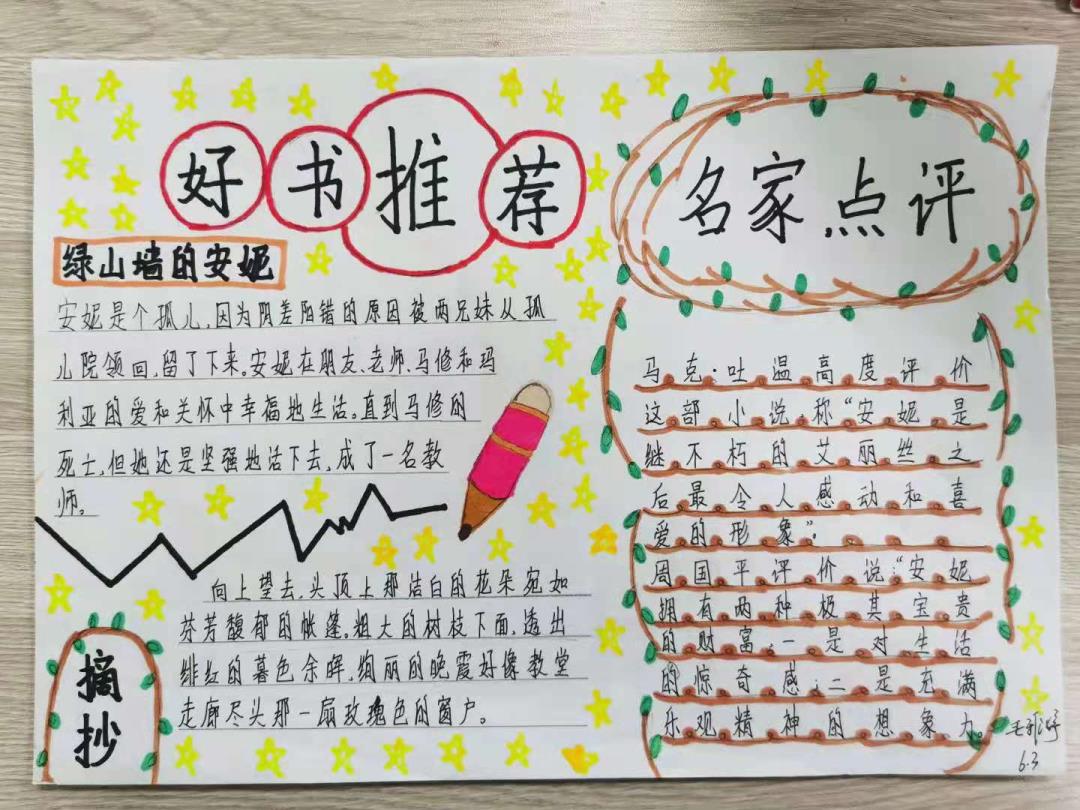 好书推荐
绿山墙的安妮
安妮是个孤儿,因为阴差阳错的原因被两兄妹从孤
儿院领回,留了下来。安妮在朋友、老师、马修和玛
利亚的爱和关怀中幸福地生活。直到马修的
死亡,但她还是坚强地活下去,成了一名教
师。
向上望去,头顶上那洁白的花朵宛如
芬芳馥郁的帐篷。粗大的树枝下面,透出
绯红的暮色余晖,绚丽的晚霞好像教堂
走廊尽头那一扇玫瑰色的窗户。
摘抄
名家点评
马克:吐温高度评价
这部小说,称“安妮是
继不朽的艾丽丝之
后最令人感动和喜
爱的形象”。
周国平评价说:“安妮
拥有两种极其宝贵
的财富,一是对生活
的惊奇感;二是充满
乐观精神的想象力。
6.3